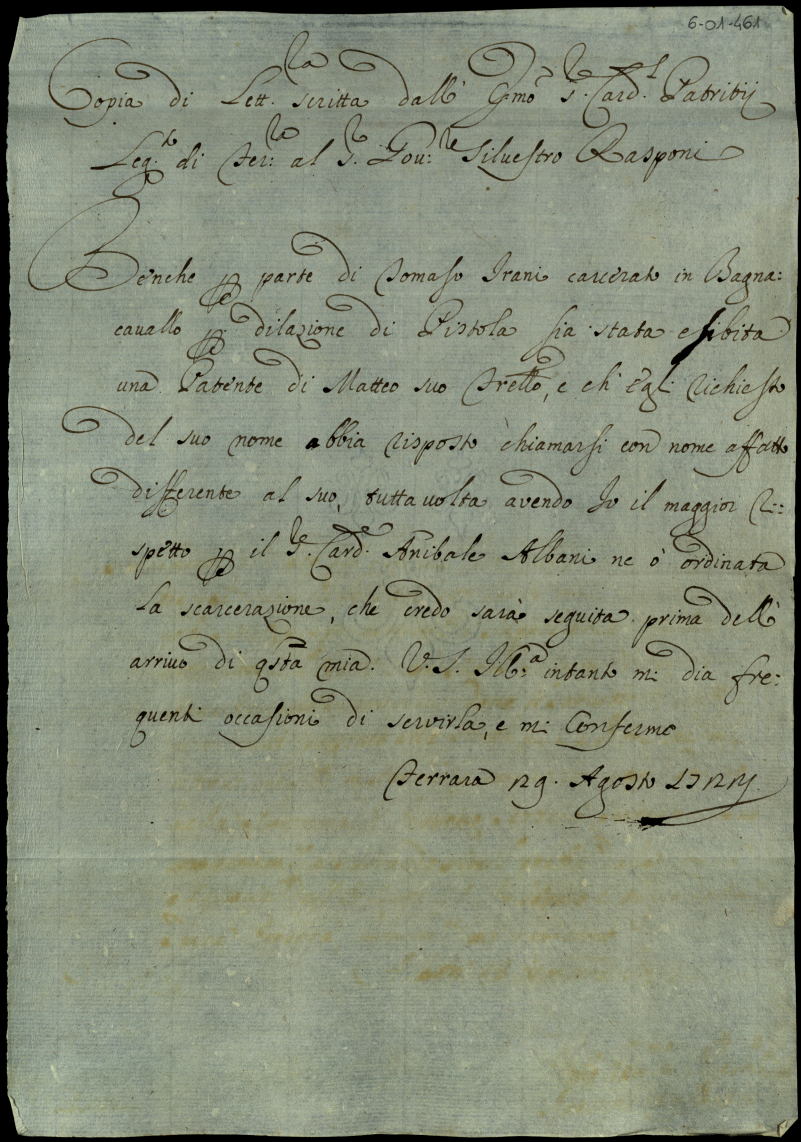 6-01-461
Copia di Lett.ra scritta dall' Emo S.r Card.l Patritij
Leg.to di Fer:ra al S.r Gov:re Silvestro Rasponi
Benche p parte di Tomaso Irani carcerato in Bagna:
cavallo p dilazione di Pistola sia stata esibita
una Patente di Matteo suo Frello, e ch' egli richiesto
del suo nome abbia risposto chiamarsi con nome affatto
differente al suo, tutta volta avendo Io il maggior ri:
spetto p il S.r Card.le Anibale Albani ne ò ordinata
la scarcerazione, che credo sarà seguita prima dell'
arrivo di qsta mia. V. S. Ill:a intanto mi dia fre:
quenti occasioni di servirla, e mi Confermo
Ferrara 29. Agosto